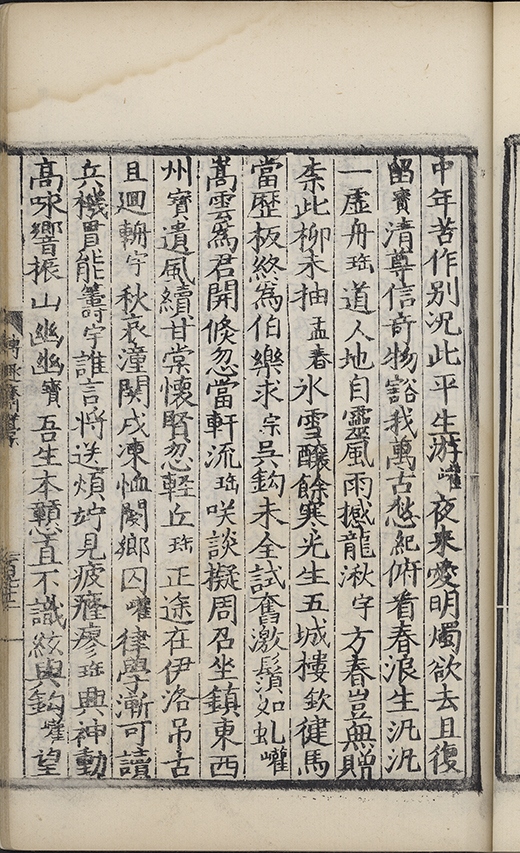 中年苦作别况此平生游㠢夜來愛明燭欲去且復
留寳清尊信竒物豁我萬古愁紀俯看春浪生汎汎
一虚舟珤道人地自靈風雨撼龍湫字方春豈無贈
柰此柳未抽孟春氷雪釀餘寒光生五城樓欽健馬
當歷板終為伯樂求宗吳鈎未全試奮激鬚如虬㠢
嵩雲為君開倐忽當軒流珤咲談擬周召坐鎮東西
州寳遺風續甘棠懷賢忽輕丘珤正途在伊洛吊古
且廻輈字秋哀潼関戍凍恤閿鄉囚㠢律學漸可讀
兵機貫能籌字誰言將送煩竚見疲癃瘳珤興神動
高咏響振山幽幽寳吾生本戇直不識絃與鈎㠢望